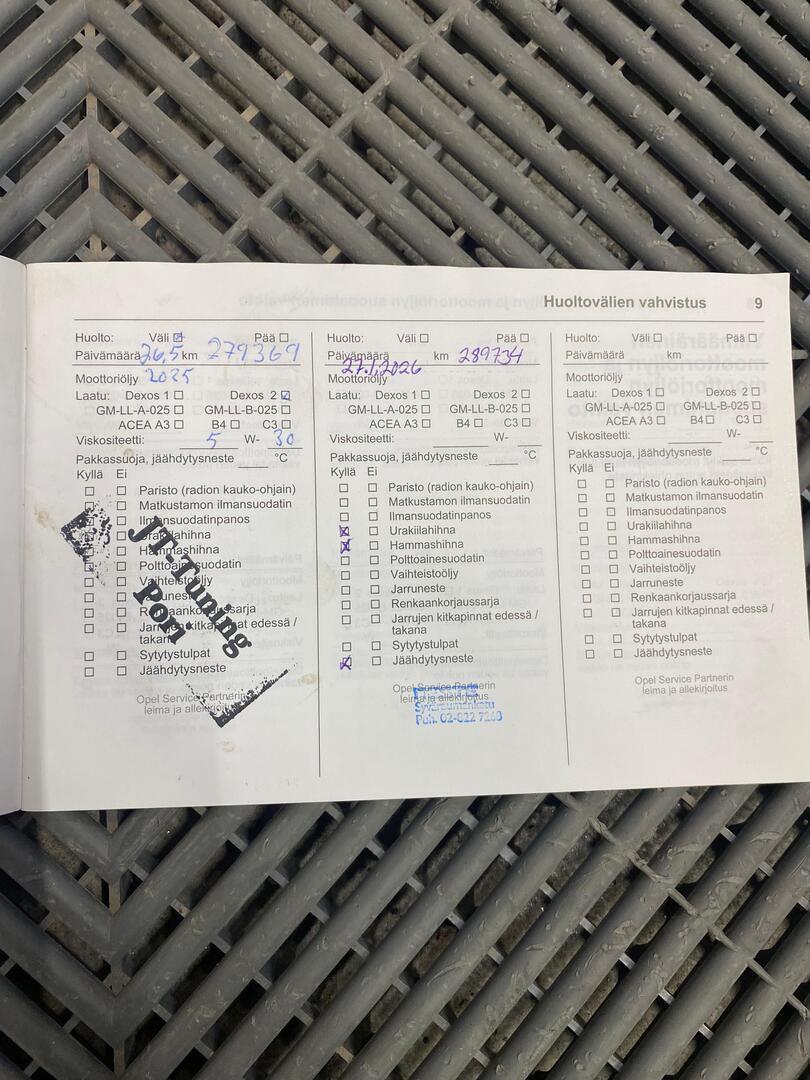 Huoltovälien vahvistus 9
Huolto: Väli ☑ Pää ☐
Päivämäärä 26,5 km 279369
Moottoriöljy 2025
Laatu: Dexos 1 ☐ Dexos 2 ☑
GM-LL-A-025 ☐ GM-LL-B-025 ☐
ACEA A3 ☐ B4 ☐ C3 ☐
Viskositeetti: 5 W- 30
Pakkassuoja, jäähdytysneste °C
Kyllä Ei
☐ ☐ Paristo (radion kauko-ohjain)
☐ ☐ Matkustamon ilmansuodatin
☐ ☐ Ilmansuodatinpanos
☐ ☐ Urakiilahihna
☐ ☐ Hammashihna
☐ ☐ Polttoainesuodatin
☐ ☐ Vaihteistoöljy
☐ ☐ Jarruneste
☐ ☐ Renkaankorjaussarja
☐ ☐ Jarrujen kitkapinnat edessä /
takana
☐ ☐ Sytytystulpat
☐ ☐ Jäähdytysneste
Opel Service Partnerin
leima ja allekirjoitus
JT-Tuning
Pori
Huolto: Väli ☐ Pää ☐
Päivämäärä km 289734
27.1.2026
Moottoriöljy
Laatu: Dexos 1 ☐ Dexos 2 ☐
GM-LL-A-025 ☐ GM-LL-B-025 ☐
ACEA A3 ☐ B4 ☐ C3 ☐
Viskositeetti: W-
Pakkassuoja, jäähdytysneste °C
Kyllä Ei
☐ ☐ Paristo (radion kauko-ohjain)
☐ ☐ Matkustamon ilmansuodatin
☐ ☐ Ilmansuodatinpanos
☒ ☐ Urakiilahihna
☒ ☐ Hammashihna
☐ ☐ Polttoainesuodatin
☐ ☐ Vaihteistoöljy
☐ ☐ Jarruneste
☐ ☐ Renkaankorjaussarja
☐ ☐ Jarrujen kitkapinnat edessä /
takana
☐ ☐ Sytytystulpat
☒ ☐ Jäähdytysneste
Opel Service Partnerin
leima ja allekirjoitus
Puh. 02-622 7268
Huolto: Väli ☐ Pää ☐
Päivämäärä km
Moottoriöljy
Laatu: Dexos 1 ☐ Dexos 2 ☐
GM-LL-A-025 ☐ GM-LL-B-025 ☐
ACEA A3 ☐ B4 ☐ C3 ☐
Viskositeetti: W-
Pakkassuoja, jäähdytysneste °C
Kyllä Ei
☐ ☐ Paristo (radion kauko-ohjain)
☐ ☐ Matkustamon ilmansuodatin
☐ ☐ Ilmansuodatinpanos
☐ ☐ Urakiilahihna
☐ ☐ Hammashihna
☐ ☐ Polttoainesuodatin
☐ ☐ Vaihteistoöljy
☐ ☐ Jarruneste
☐ ☐ Renkaankorjaussarja
☐ ☐ Jarrujen kitkapinnat edessä /
takana
☐ ☐ Sytytystulpat
☐ ☐ Jäähdytysneste
Opel Service Partnerin
leima ja allekirjoitus